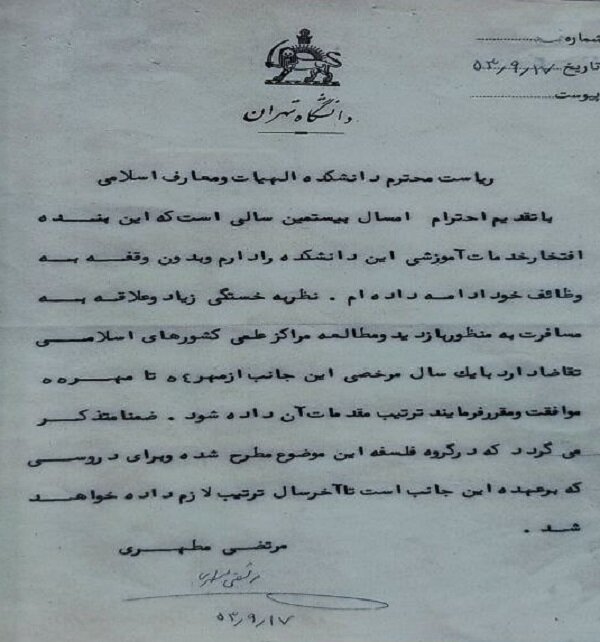 شماره
تاریخ ۵۳/۹/۱۷
پیوست
دانشگاه تهران
ریاست محترم دانشکده الهیات و معارف اسلامی
با تقدیم احترام امسال بیستمین سالی است که این بنده
افتخار خدمات آموزشی این دانشکده را دارم و بدون وقفه به
وظائف خود ادامه داده ام . نظر به خستگی زیاد و علاقه به
مسافرت به منظور بازدید و مطالعه مراکز علمی کشورهای اسلامی
تقاضا دارد با یك سال مرخصی این جانب از مهر ٥٤ تا مهر ٥٥
موافقت و مقرر فرمایند ترتیب مقدمات آن داده شود . ضمنا متذکر
می گردد که در گروه فلسفه این موضوع مطرح شده و برای دروسی
که بر عهده این جانب است تا آخر سال ترتیب لازم داده خواهد
شد .
مرتضی مطهری
مرتضی مطهری
۵۳/۹/۱۷